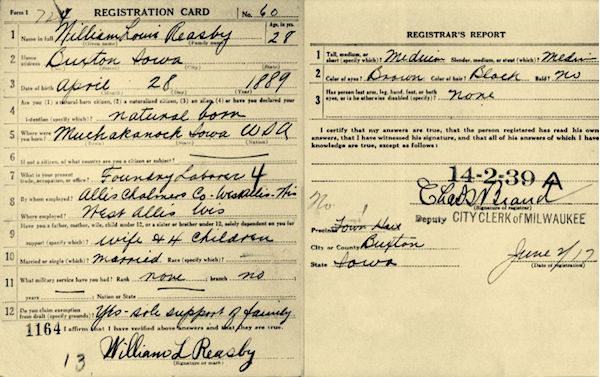 Form 1 REGISTRATION CARD No. 60
1 Name in full William Louis Reasby Age, in yrs. 28
(Given name) (Family name)
2 Home address Buxton Iowa
(No.) (Street) (City) (State)
3 Date of birth April 28 1889
(Month) (Day) (Year)
4 Are you (1) a natural-born citizen, (2) a naturalized citizen, (3) an alien, (4) or have you declared your
intention (specify which)? natural born
5 Where were you born? Muchakanock Iowa USA
(Town) (State) (Nation)
6 If not a citizen, of what country are you a citizen or subject?
7 What is your present trade, occupation, or office? Foundry Laborer 4
8 By whom employed? Allis Chalmers Co - West Allis - Wis
Where employed? West Allis Wis
9 Have you a father, mother, wife, child under 12, or a sister or brother under 12, solely dependent on you for
support (specify which)? wife & 4 children
10 Married or single (which)? married Race (specify which)?
11 What military service have you had? Rank none ; branch no
years ; Nation or State
12 Do you claim exemption from draft (specify grounds)? Yes - sole support of family
1164 I affirm that I have verified above answers and that they are true.
13 William L Reasby
(Signature or mark)
REGISTRAR'S REPORT
1 Tall, medium, or short (specify which)? Medium Slender, medium, or stout (which)? Medium
2 Color of eyes? Brown Color of hair? Black Bald? No
3 Has person lost arm, leg, hand, foot, or both eyes, or is he otherwise disabled (specify)? None
I certify that my answers are true, that the person registered has read his own
answers, that I have witnessed his signature, and that all of his answers of which I have
knowledge are true, except as follows:
14-2-39 A
(Signature of registrar)
Deputy CITY CLERK of MILWAUKEE
No
Precinct Town
City or County Buxton
State Iowa
June 2/17
(Date of registration)